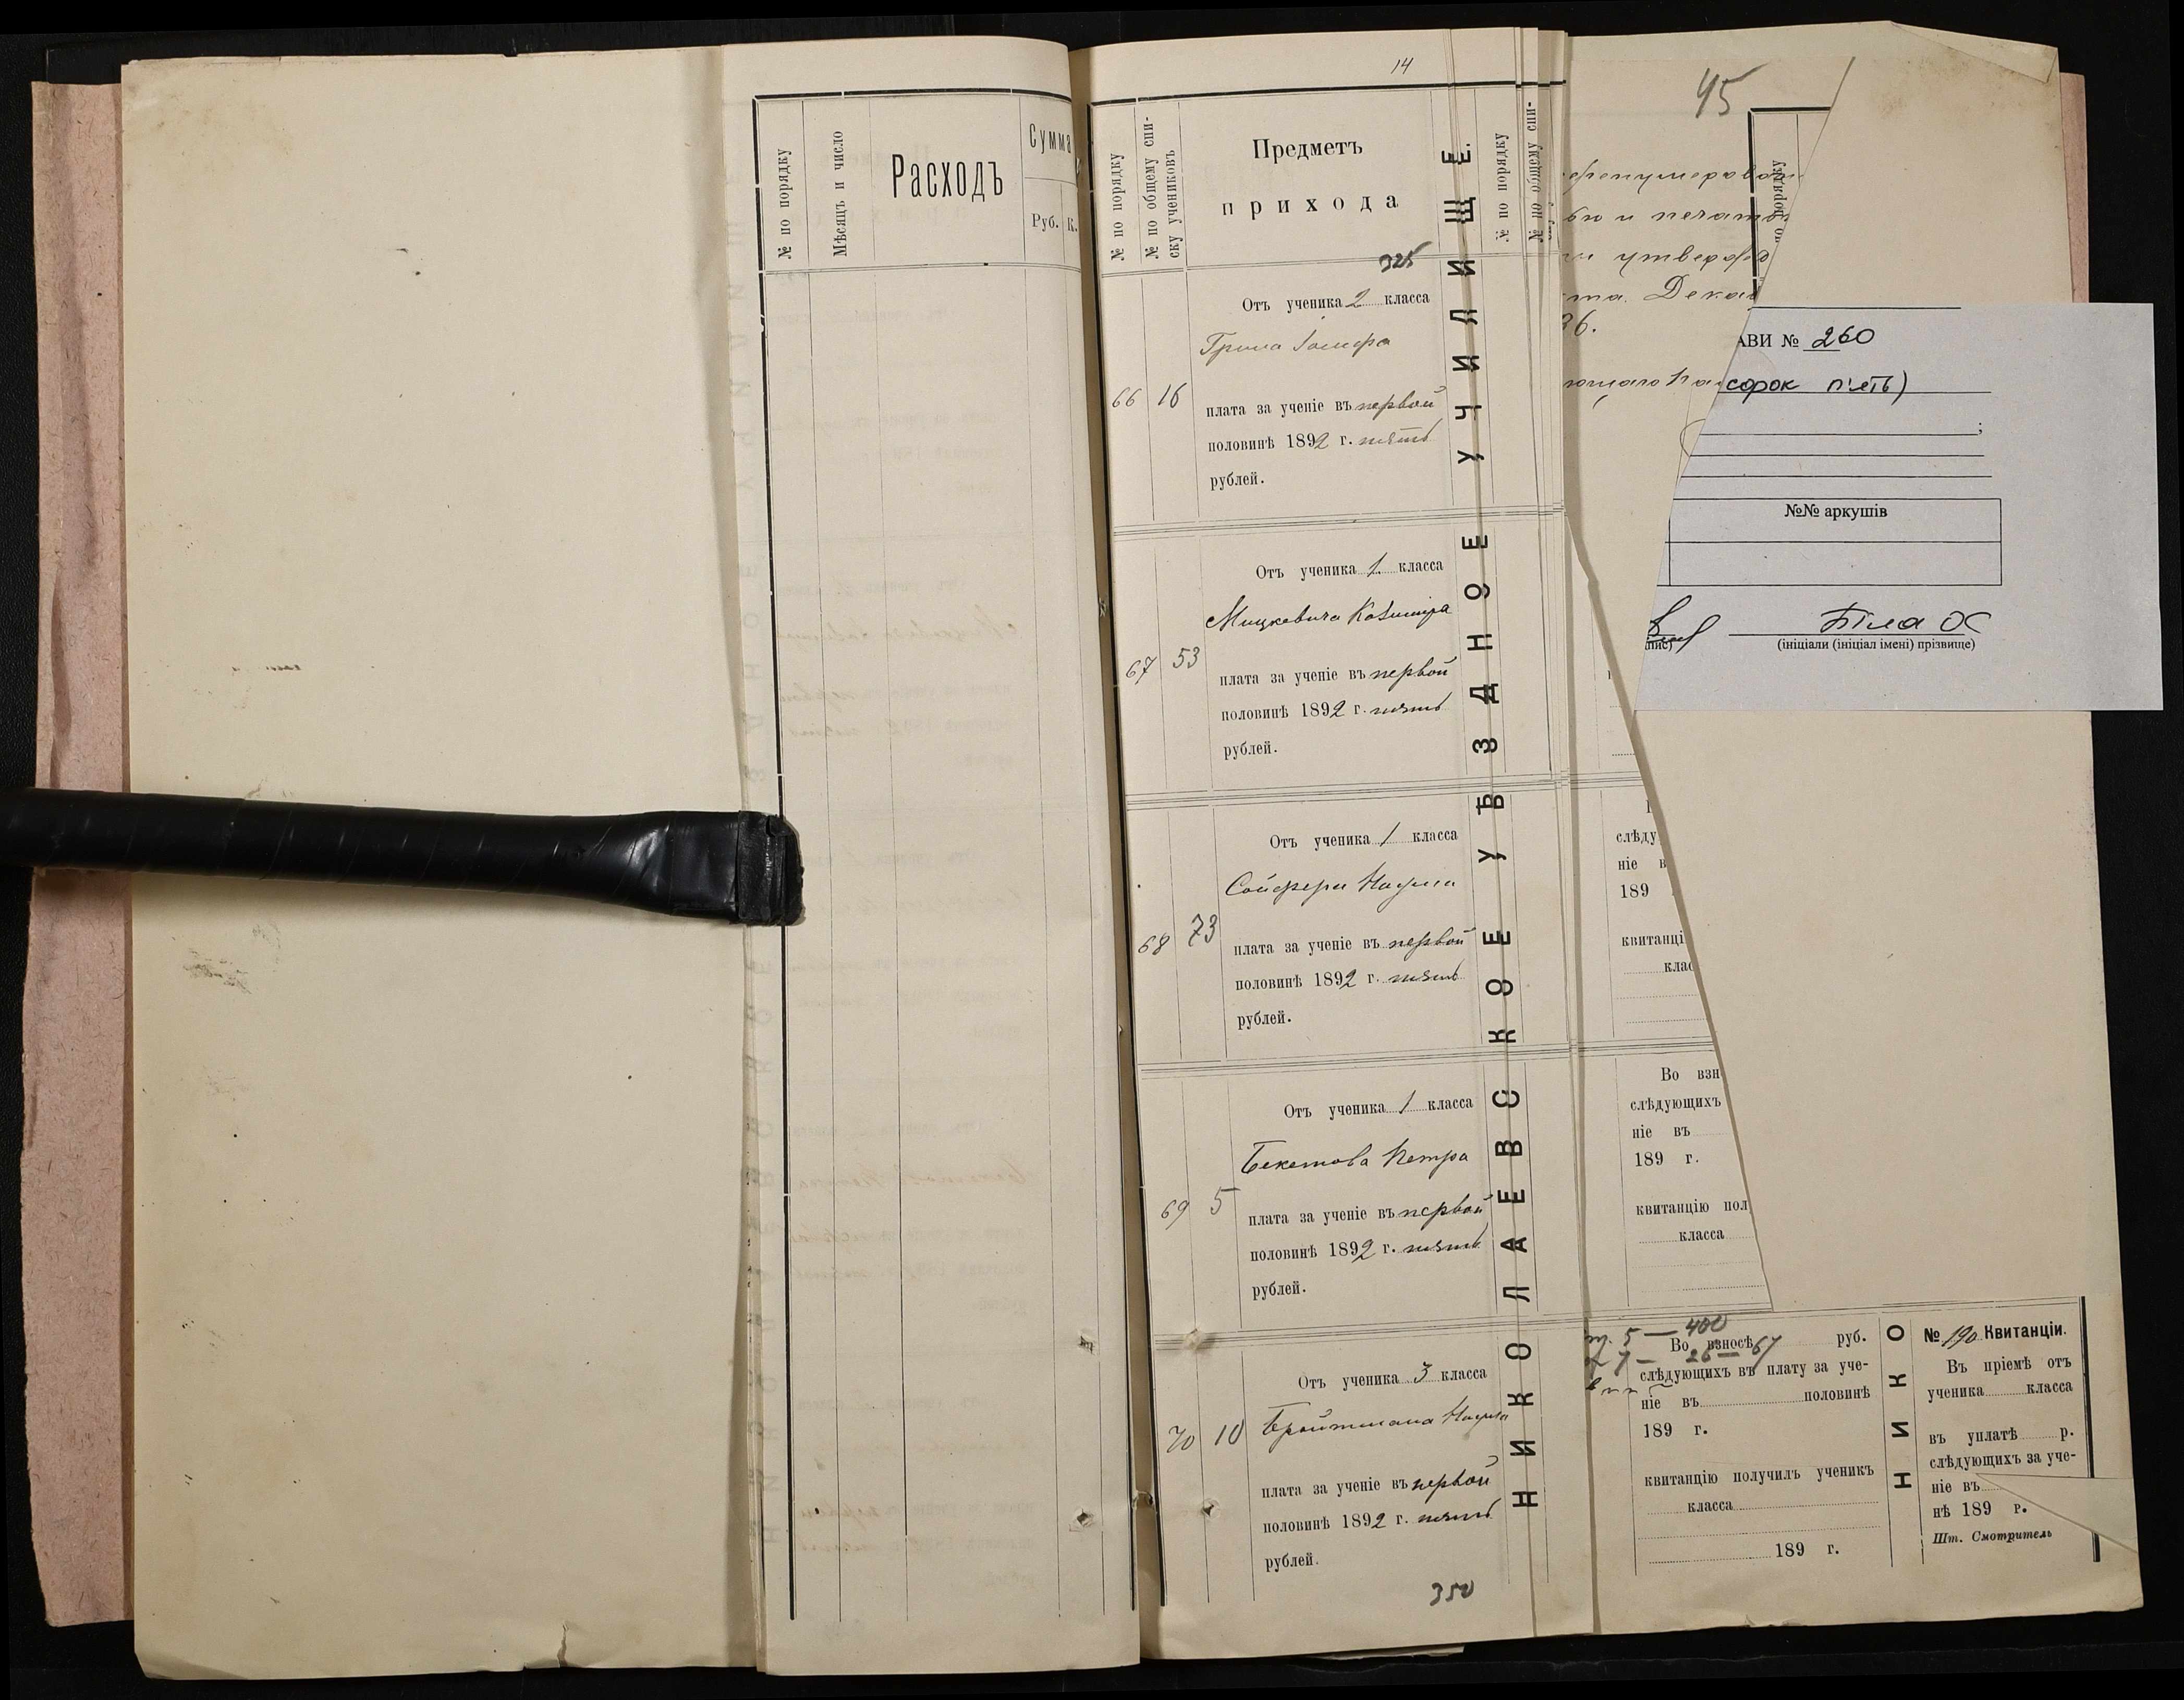 № по порядку
Мѣсяцъ и число
Расходъ
Сумма
Руб.
К.
14
№ по порядку
№ по общему спи-
ску учениковъ
Предметъ
прихода
325
Отъ ученика 2 класса
66 16
плата за ученіе въ первой
половинѣ 1892 г. пять
рублей.
Отъ ученика 1 класса
Мицкевича Казимира
67 53
плата за ученіе въ первой
половинѣ 1892 г. пять
рублей.
Отъ ученика 1 класса
Сойфера
68 73
плата за ученіе въ первой
половинѣ 1892 г. пять
рублей.
Отъ ученика 1 класса
Бекетова Петра
69 5
плата за ученіе въ первой
половинѣ 1892 г. пять
рублей.
Отъ ученика 3 класса
Бройтмана
70 10
плата за ученіе въ первой
половинѣ 1892 г. пять
рублей.
350
НИКОЛАЕВСКОЕ УѢЗДНОЕ УЧИЛИЩЕ.
№ по порядку
№ по общему спи-
45
и печать
утверж
та. Дека
36.
по порядку
АВИ № 260
сорок п'ять)
;
№№ аркушів
Біла ОС
(ініціали (ініціал імені) прізвище)
слѣду
ніе в
189
квитанці
клас
Во взн
слѣдующихъ
ніе въ
189 г.
квитанцію пол
класса
5 — 400
7 — 26 — 67
Во взносѣ руб.
слѣдующихъ въ плату за уче-
ніе въ половинѣ
189 г.
квитанцію получилъ ученикъ
класса
189 г.
НИКО
№ 190 Квитанціи.
Въ пріемѣ отъ
ученика класса
въ уплатѣ р.
слѣдующихъ за уче-
ніе въ
нѣ 189 г.
Шт. Смотритель